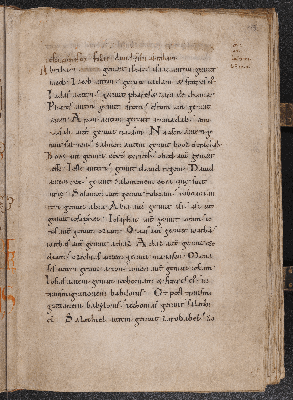 filii david filii abraham
Abraham genuit isaac isaac autem genuit
iacob Iacob autem genuit iudam & fratres ei
Iudas autem genuit phares & zara de thamar
Phares autem genuit esrom esrom aut genuit
aram Aram autem genuit aminadab ami
nadab aut genuit naason Naason autem ge
nuit salmon salmon autem genuit booz de rachab
Booz aut genuit obeth ex ruth obeth aut genuit
iesse Iesse autem genuit david regem David
autem rex genuit salomonem ex ea que fuit
urie Salomon aut genuit roboam roboam au
tem genuit abia Abia aut genuit asa asa aut
genuit iosaphat Iosaphat aut genuit ioram io
ram aut genuit oziam Ozias aut genuit ioatha
ioathas aut genuit achaz Achaz aut genuit eze
chiam ezechias autem genuit manassen Mana
ses autem genuit amon amon aut genuit iosiam
Iosias autem genuit iechoniam & fratres ei in
transmigratione babilonis Et post transmi
grationem babilonis iechonias genuit salathi
el Salathiel autem genuit zorobabel zo